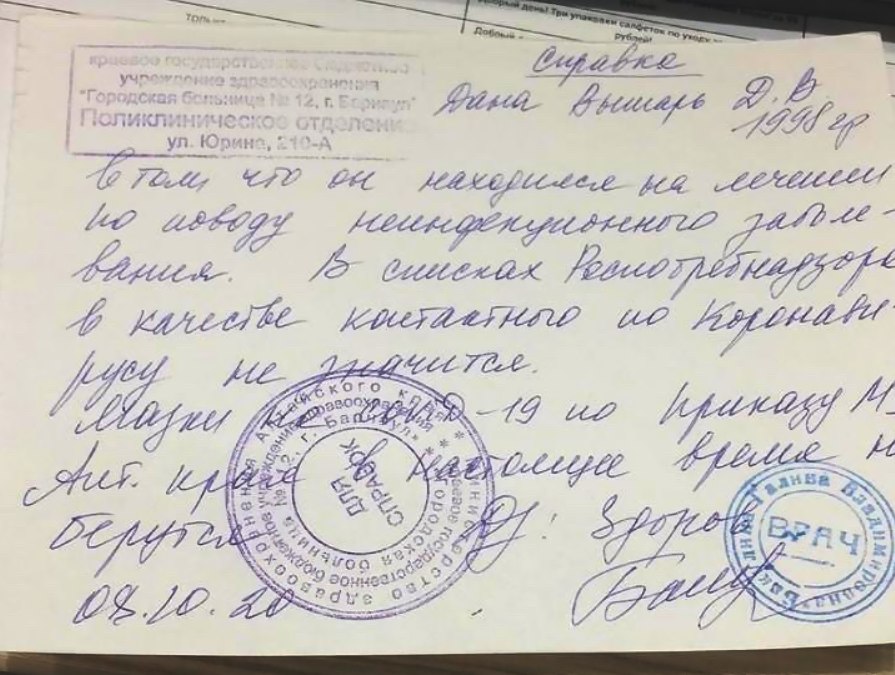 только
Добрый день! Три упаковки салфеток по уходу за
рублей!
Добрый
краевое государственное бюджетное
учреждение здравоохранения
"Городская больница № 12, г. Барнаул"
Поликлиническое отделение
ул. Юрина, 210-А
Справка
Дана Вышарь Д. В.
1998 гр
в том, что он находился на лечении
по поводу неинфекционного заболе-
вания. В списках Роспотребнадзора
в качестве контактного по Коронави
русу не значится.
Мазки на COVID-19 по приказу М
Алт. края в настоящее время н
берутся Dz: Здоров
08.10.20
Министерство здравоохранения Алтайского края
краевое государственное бюджетное учреждение здравоохранения
"Городская больница № 12, г. Барнаул"
ДЛЯ
СПРАВОК
Галина Владимировна
ВРАЧ